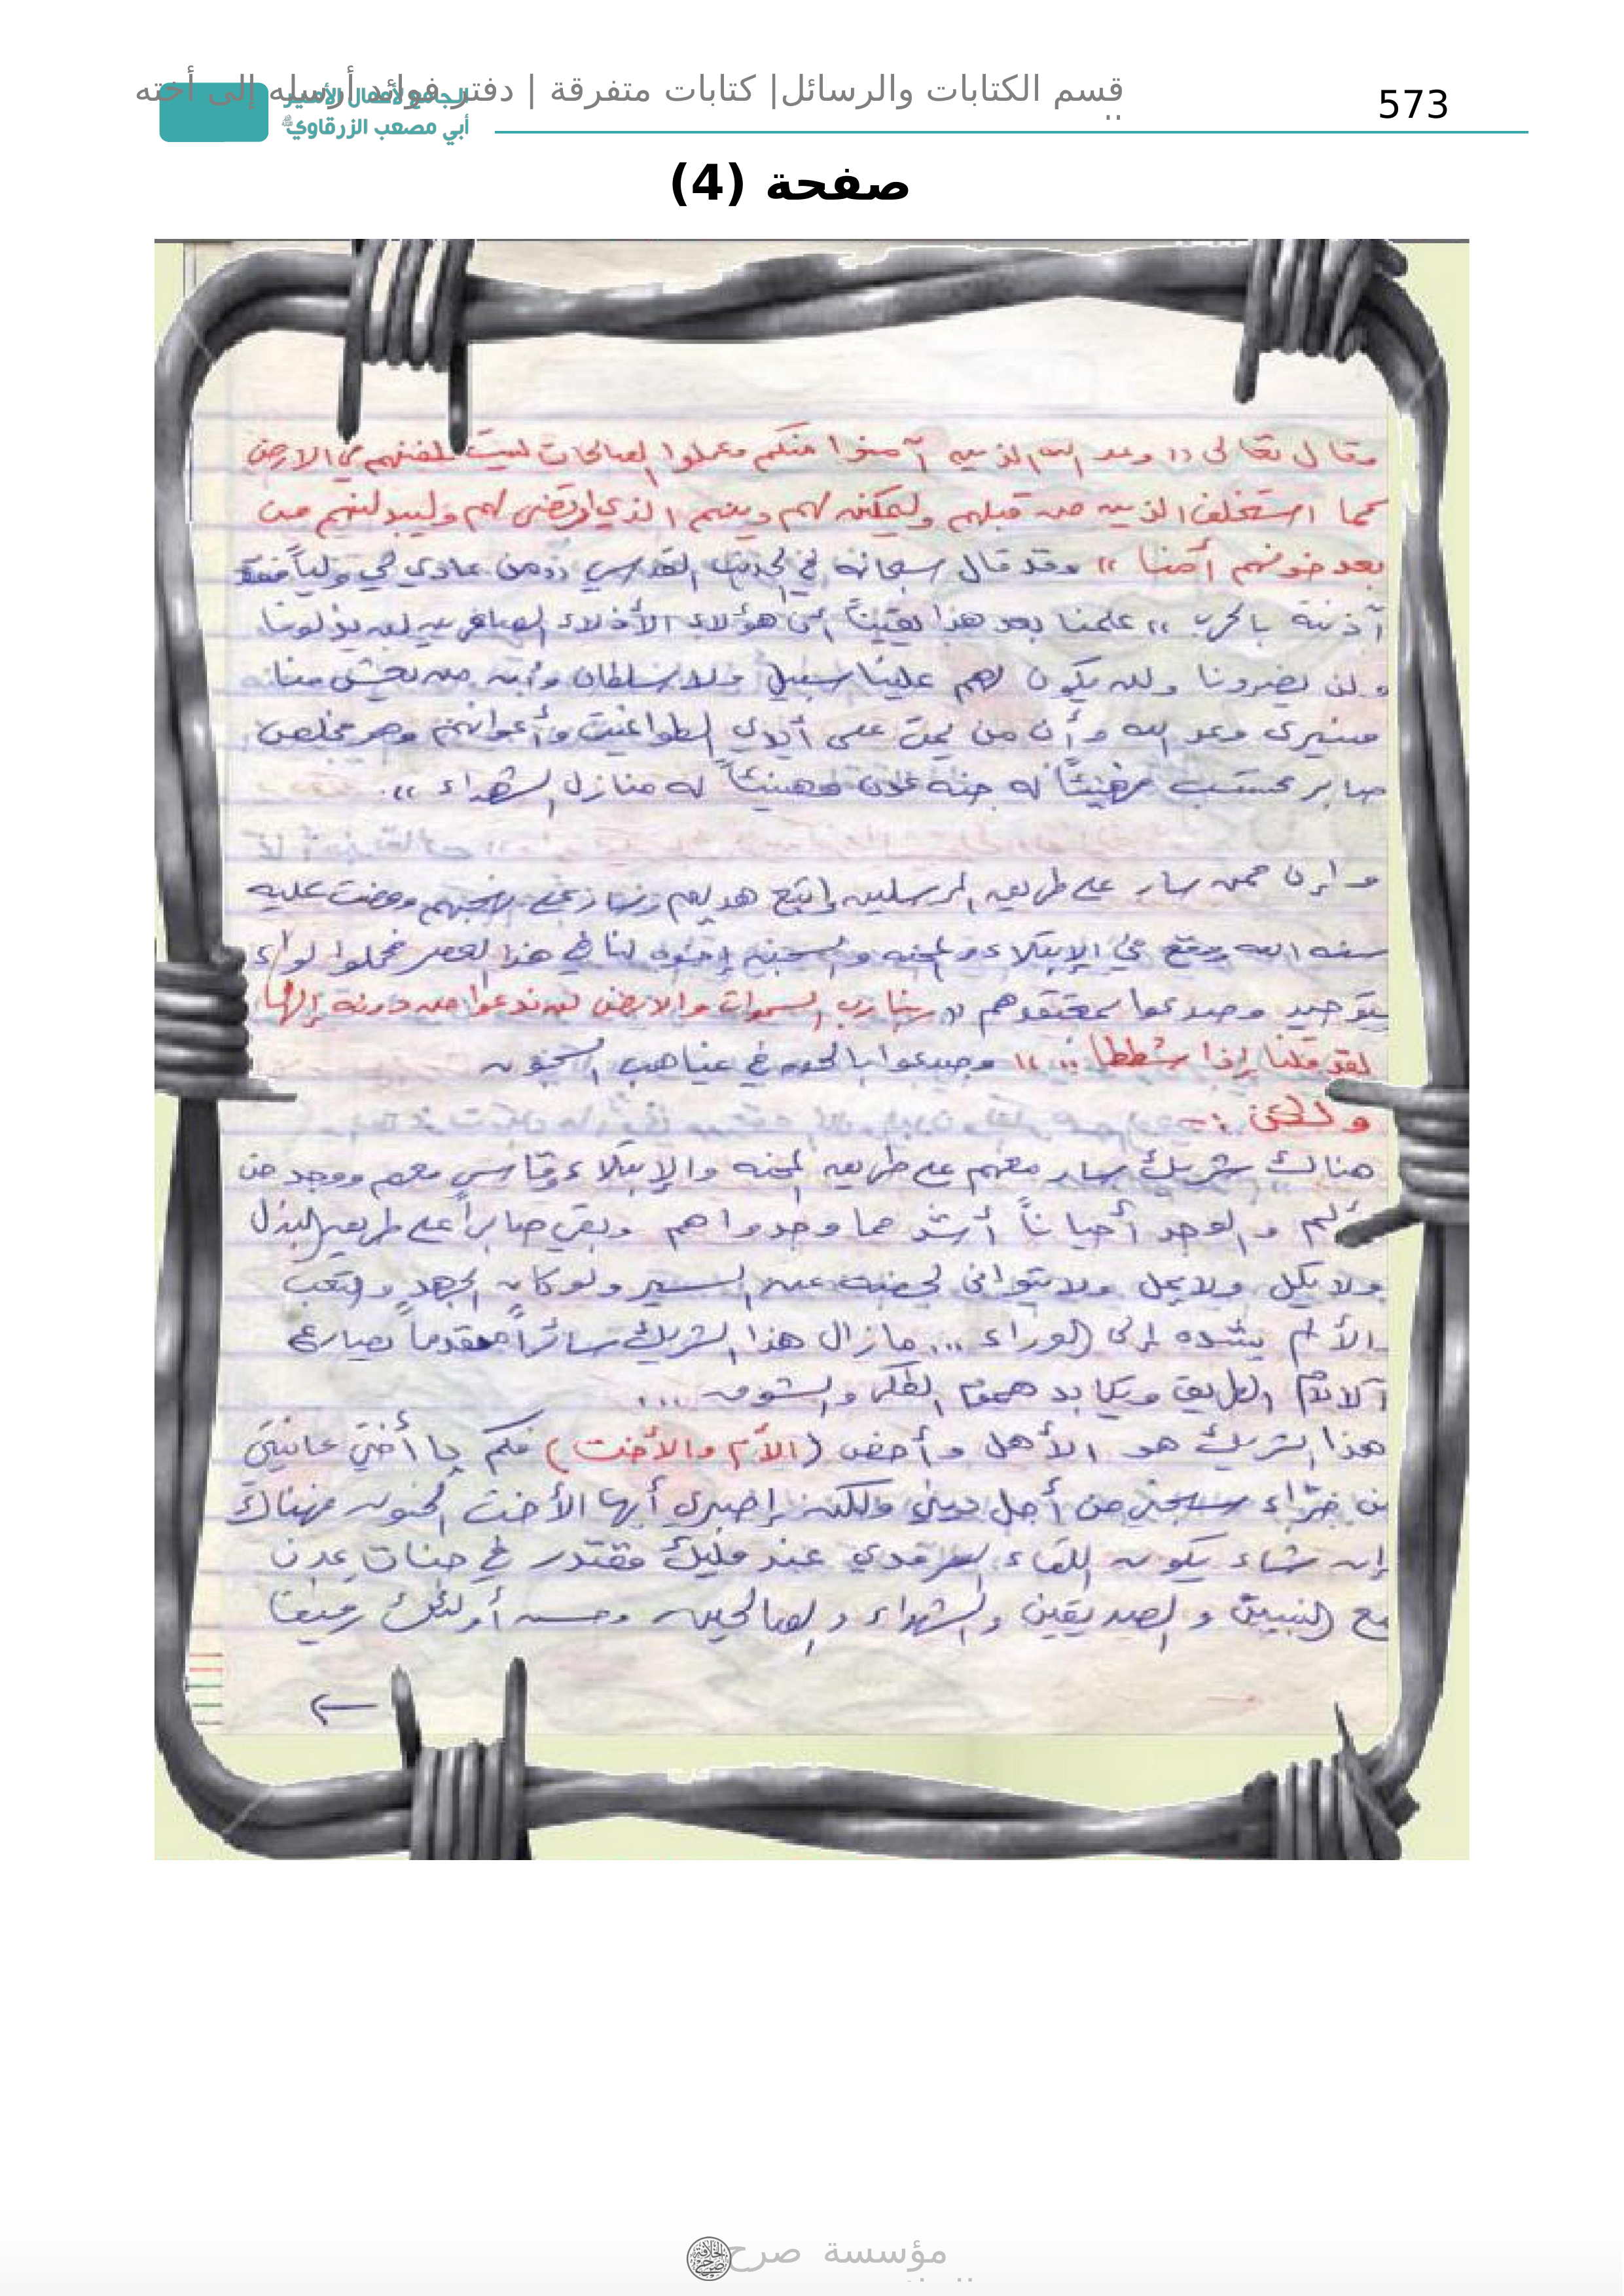 573
قسم الكتابات والرسائل| كتابات متفرقة | دفتر فوائد أرسله إلى أخته
الجامع لأعمال الأمير
أبي مصعب الزرقاوي
صفحة (4)
وقال تعالى (( وعد الله الذين آمنوا منكم وعملوا الصالحات ليستخلفنهم في الارض
كما استخلف الذين من قبلهم وليمكنن لهم دينهم الذي ارتضى لهم وليبدلنهم من
بعد خوفهم أمنا )) وقد قال سبحانه في الحديث القدسي ((من عادى لي ولياً فقد
آذنته بالحرب )) علمنا بعد هذا يقيناً أن هؤلاء الأذلاء الصاغرين لن يذلونا
ولن يضرونا ولن يكون لهم علينا سبيل ولا سلطان وأن من يعش منا
فسيرى وعد الله وأن من يمت على أيدي الطواغيت وأعوانهم وهو مخلص
صابر محتسب فهنيئاً له جنة عدن وهنيئاً له منازل الشهداء )).
وإن ممن سار على طريق المرسلين واتبع هديهم وسار على نهجهم ومضت عليه
سنة الله ووقع في الإبتلاء والمحنة والسجن إخوة لنا في هذا العصر فحملوا لواء
التوحيد وصدعوا بمعتقدهم (( ربنا رب السموات والارض لن ندعوا من دونه إلها
لقد قلنا إذا شططا )) وصدعوا بالحق في غياهب السجون
ولكن :-
هناك شريك سار معهم على طريق المحنة والإبتلاء وقاسى معهم ووجد من
الألم والوجد أحياناً أشد مما وجدوا هم وبقي صابراً على طريق البذل
ولا يكل ولا يمل ولا يتوانى لحضة عن السير ولو كان الجهد والتعب
والألم يشده إلى الوراء ... مازال هذا الشريك سائراً متقدماً يصارع
آلام الطريق ويكابد هموم الفكر والشوق ...
هذا الشريك هو الأهل وأخص (الأم والأخت) فكم يا أختي عانيتي
من جرّاء سجني من أجل ديني ولكن إصبري أيها الأخت الحنون فهناك
إن شاء يكون اللقاء السرمدي عند مليك مقتدر في جنات عدن
مع النبيين والصديقين والشهداء والصالحين وحسن أولئك رفيقا
مؤسسة صرح